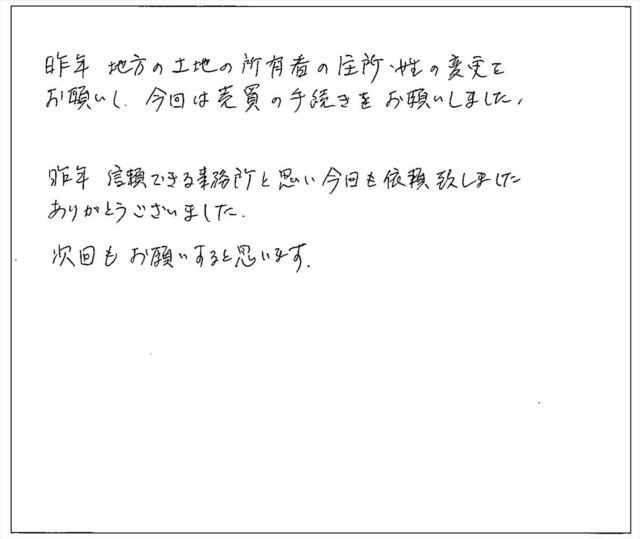 昨年 地方の土地の所有者の住所・姓の変更を
お願いし、今回は売買の手続きをお願いしました、
昨年 信頼できる事務所と思い今回も依頼致しました
ありがとうございました.
次回もお願いすると思います.